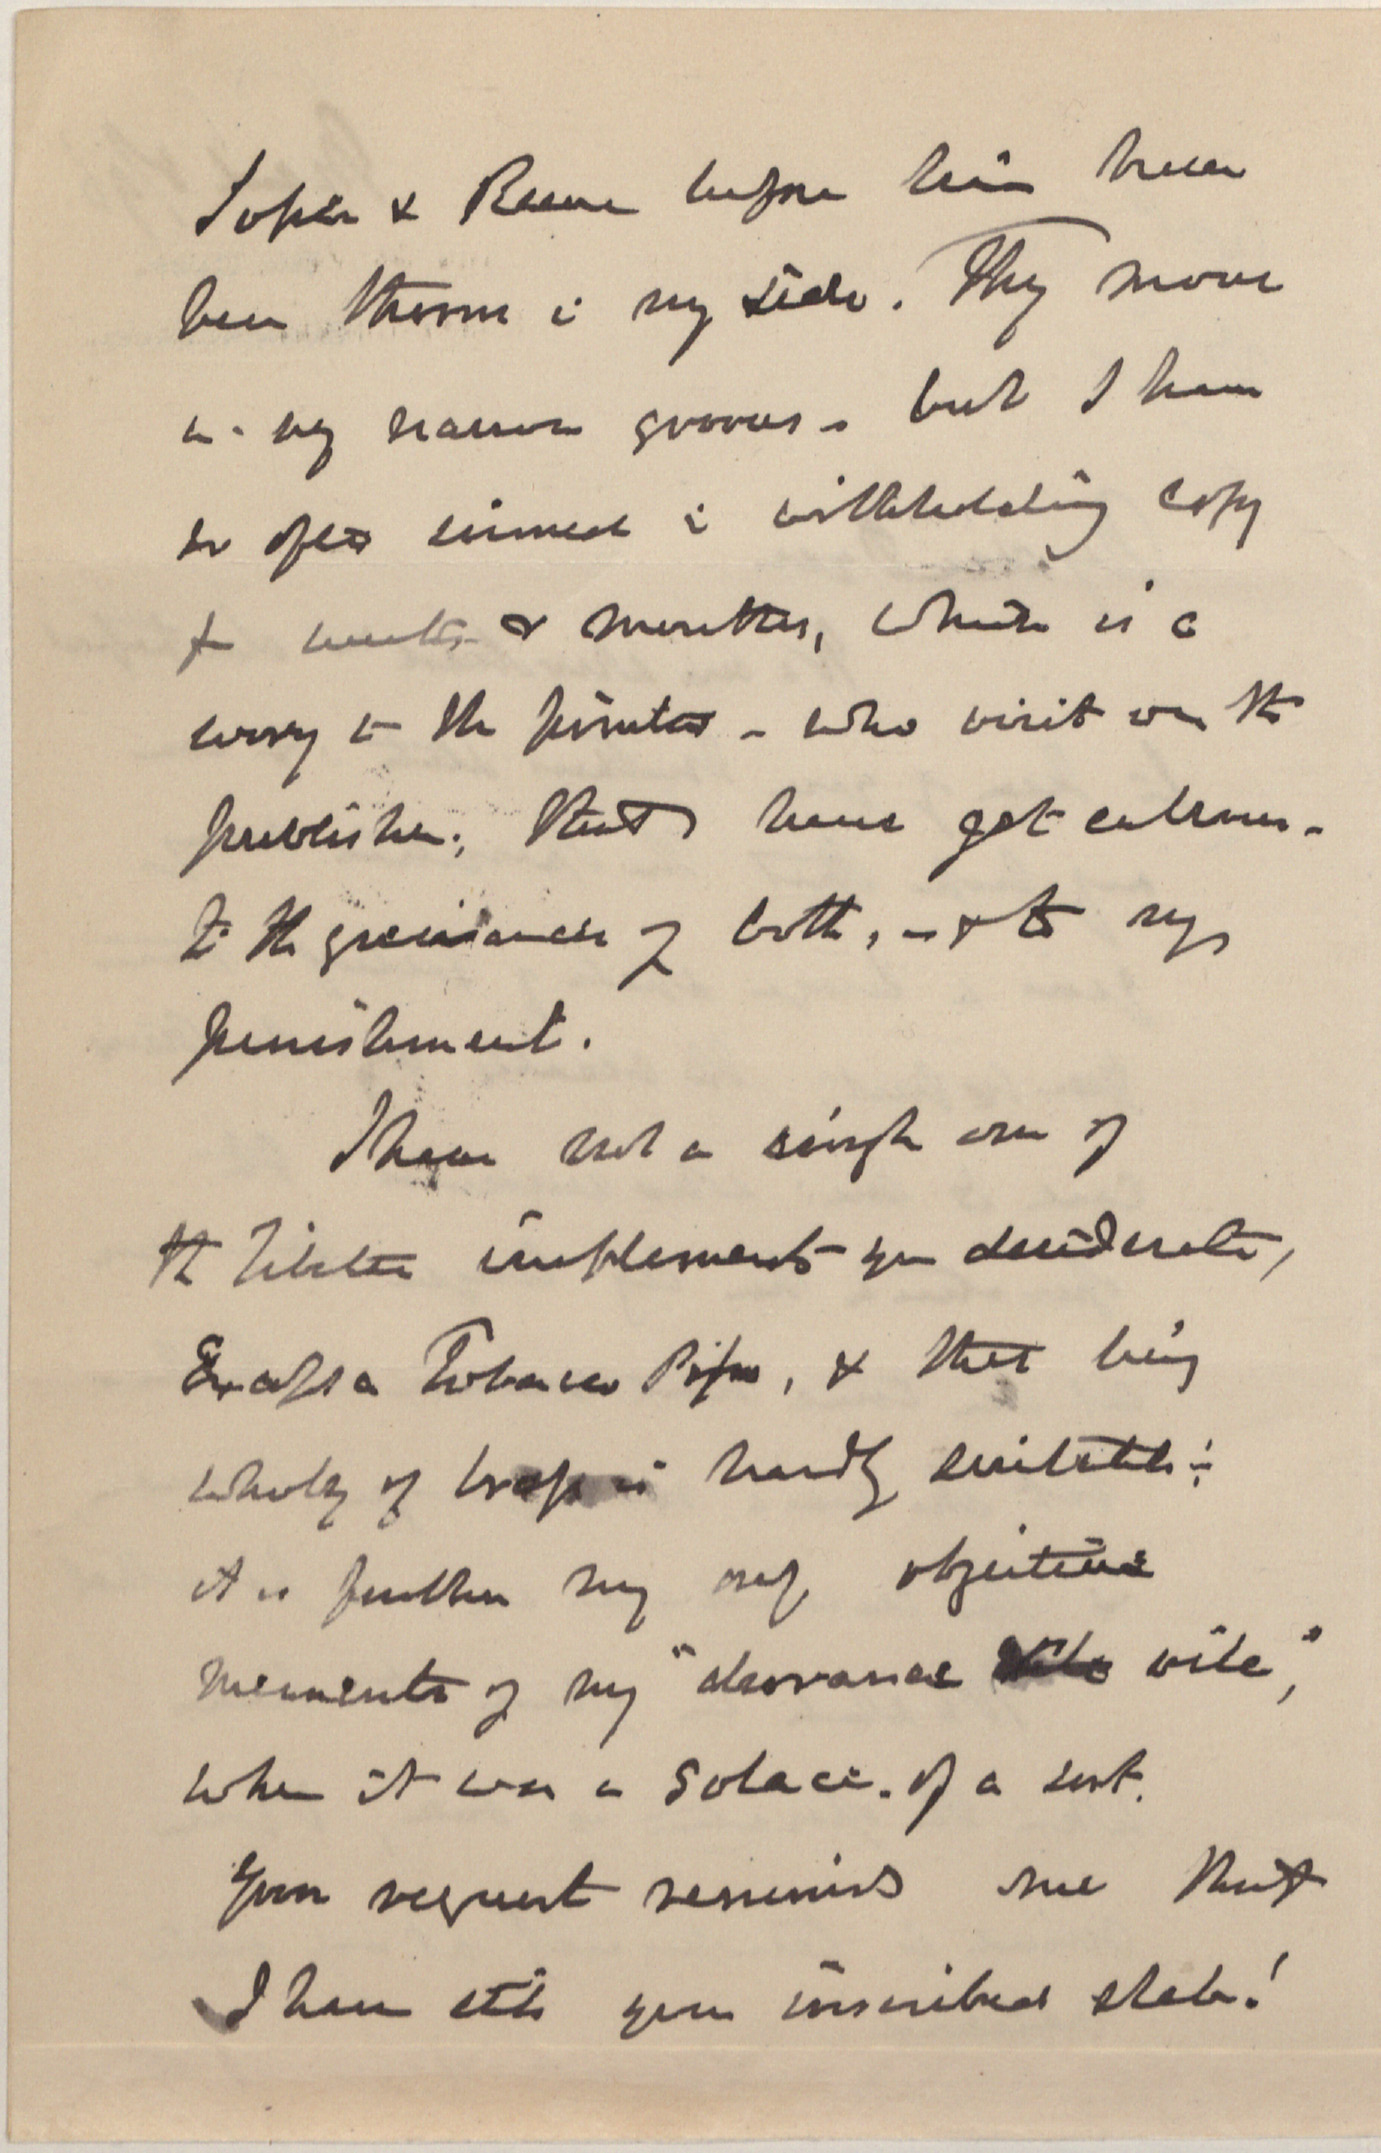 Soper & Reeve before him have
been thorns i my side. They move
in my narrow grooves – but I have
so often sinned i withholding copy
for weeks & months, which is a
worry to the printer – who visit on the
publisher, that I have got
to the grievances of both, – & to my
punishment.
I have not a single one of
the Tibetan implements you desiderate,
Except a Tobacco Pipe, & that being
wholly of brass is hardly suitable:
it is further my only objective
memento of my "durance vile",
when it was a solace. of a sort.
Your request reminds me that
I have still your inscribed slate!